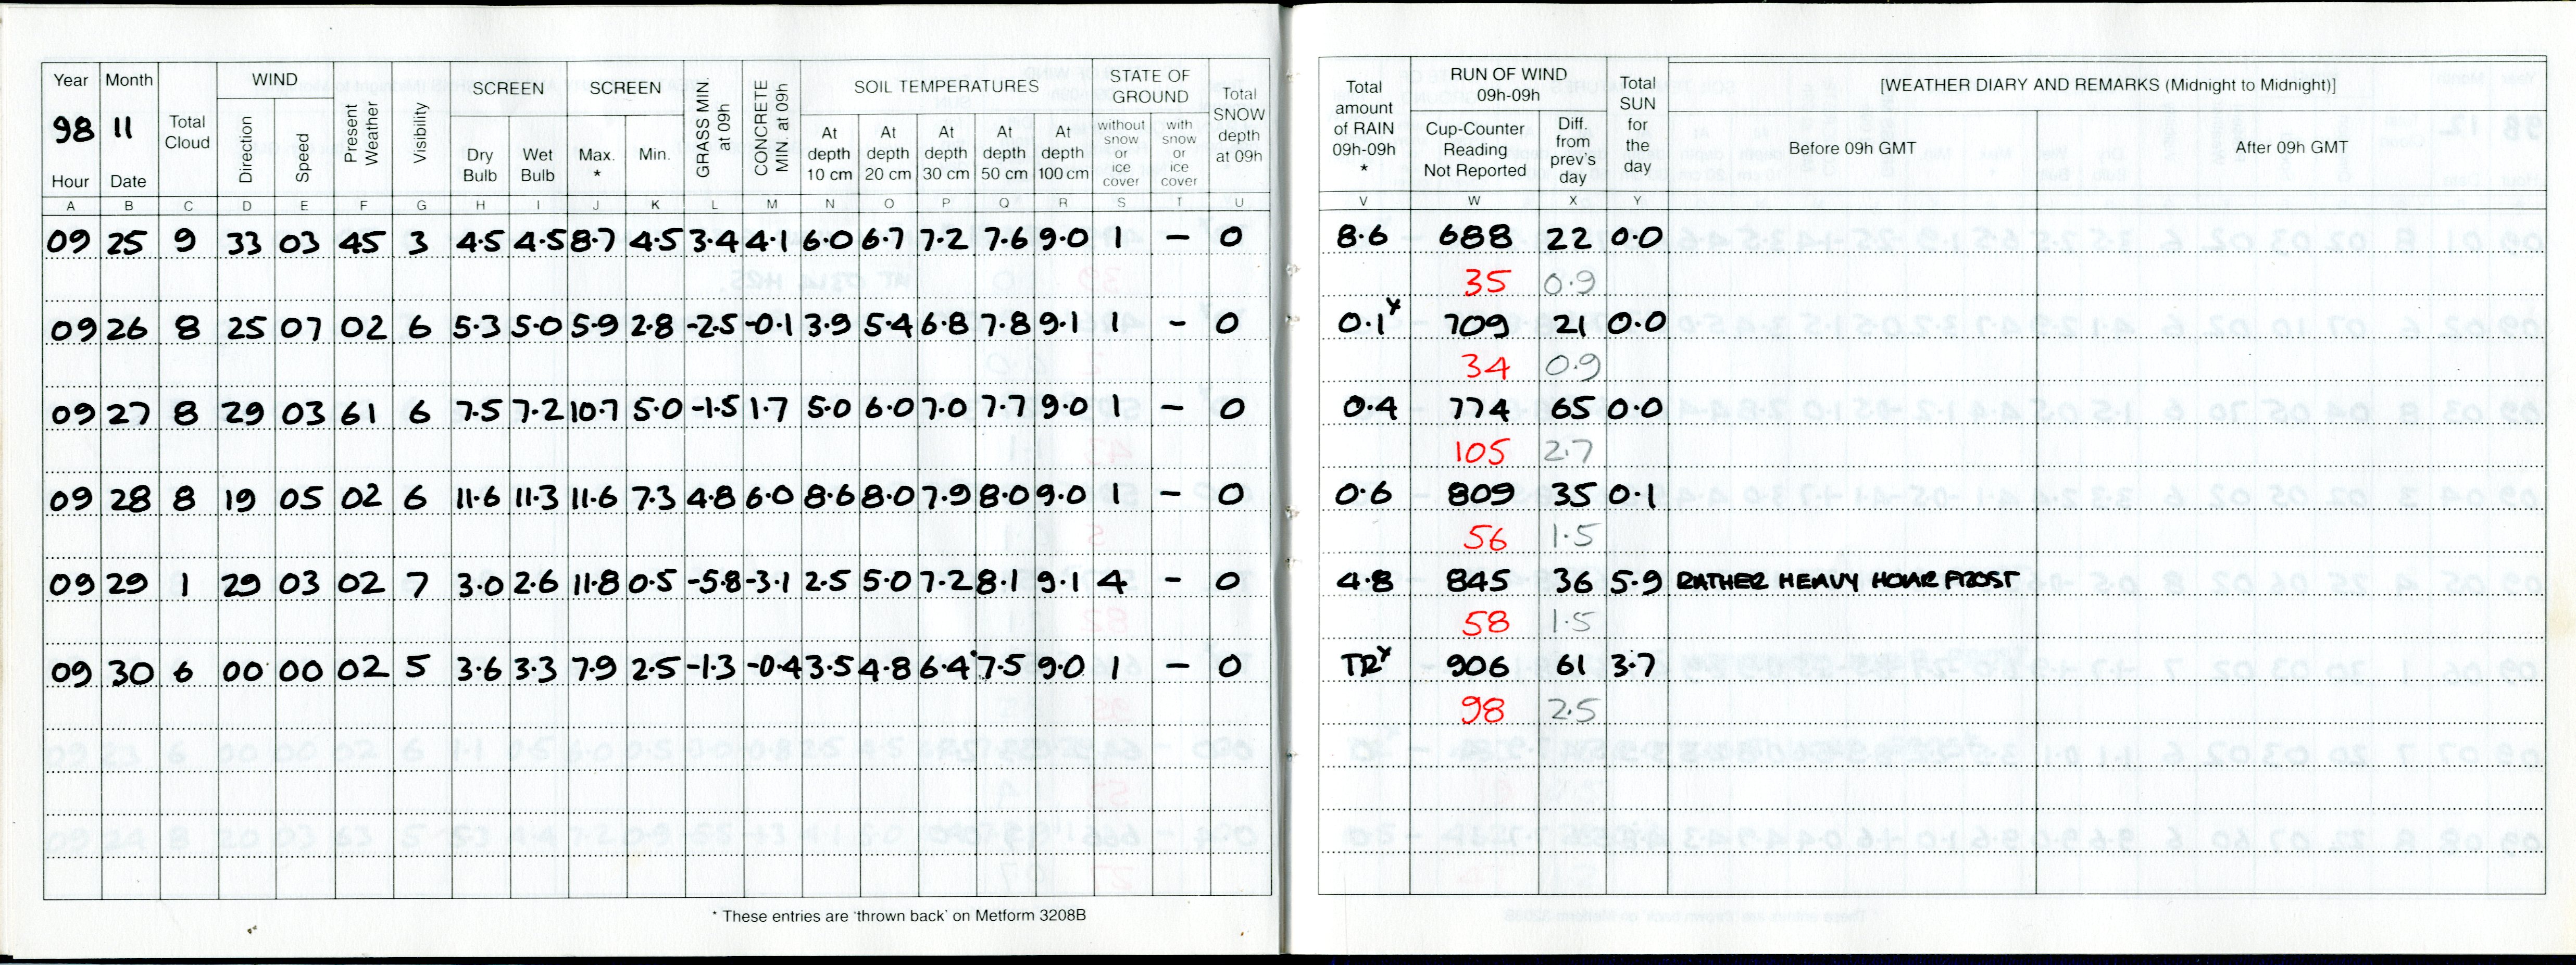 Year Month Total Cloud WIND Present Weather Visibility SCREEN SCREEN GRASS MIN. at 09h CONCRETE MIN. at 09h SOIL TEMPERATURES STATE OF GROUND Total SNOW depth at 09h Total amount of RAIN 09h-09h * RUN OF WIND 09h-09h Total SUN for the day [WEATHER DIARY AND REMARKS (Midnight to Midnight)]
98 11
Hour Date Direction Speed Dry Bulb Wet Bulb Max. * Min. At depth 10 cm At depth 20 cm At depth 30 cm At depth 50 cm At depth 100 cm without snow or ice cover with snow or ice cover Cup-Counter Reading Not Reported Diff. from prev's day Before 09h GMT After 09h GMT
A B C D E F G H I J K L M N O P Q R S T U V W X Y
09 25 9 33 03 45 3 4.5 4.5 8.7 4.5 3.4 4.1 6.0 6.7 7.2 7.6 9.0 1 – 0 8.6 688 22 0.0
35 0.9
09 26 8 25 07 02 6 5.3 5.0 5.9 2.8 -2.5 -0.1 3.9 5.4 6.8 7.8 9.1 1 – 0 0.1x 709 21 0.0
34 0.9
09 27 8 29 03 61 6 7.5 7.2 10.7 5.0 -1.5 1.7 5.0 6.0 7.0 7.7 9.0 1 – 0 0.4 774 65 0.0
105 2.7
09 28 8 19 05 02 6 11.6 11.3 11.6 7.3 4.8 6.0 8.6 8.0 7.9 8.0 9.0 1 – 0 0.6 809 35 0.1
56 1.5
09 29 1 29 03 02 7 3.0 2.6 11.8 0.5 -5.8 -3.1 2.5 5.0 7.2 8.1 9.1 4 – 0 4.8 845 36 5.9 RATHER HEAVY HOAR FROST
58 1.5
09 30 6 00 00 02 5 3.6 3.3 7.9 2.5 -1.3 -0.4 3.5 4.8 6.4 7.5 9.0 1 – 0 TRx 906 61 3.7
98 2.5
* These entries are 'thrown back' on Metform 3208B